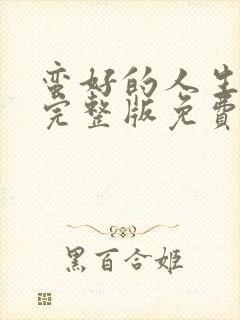 蛮好的人生
完整版免費
黑百合姬